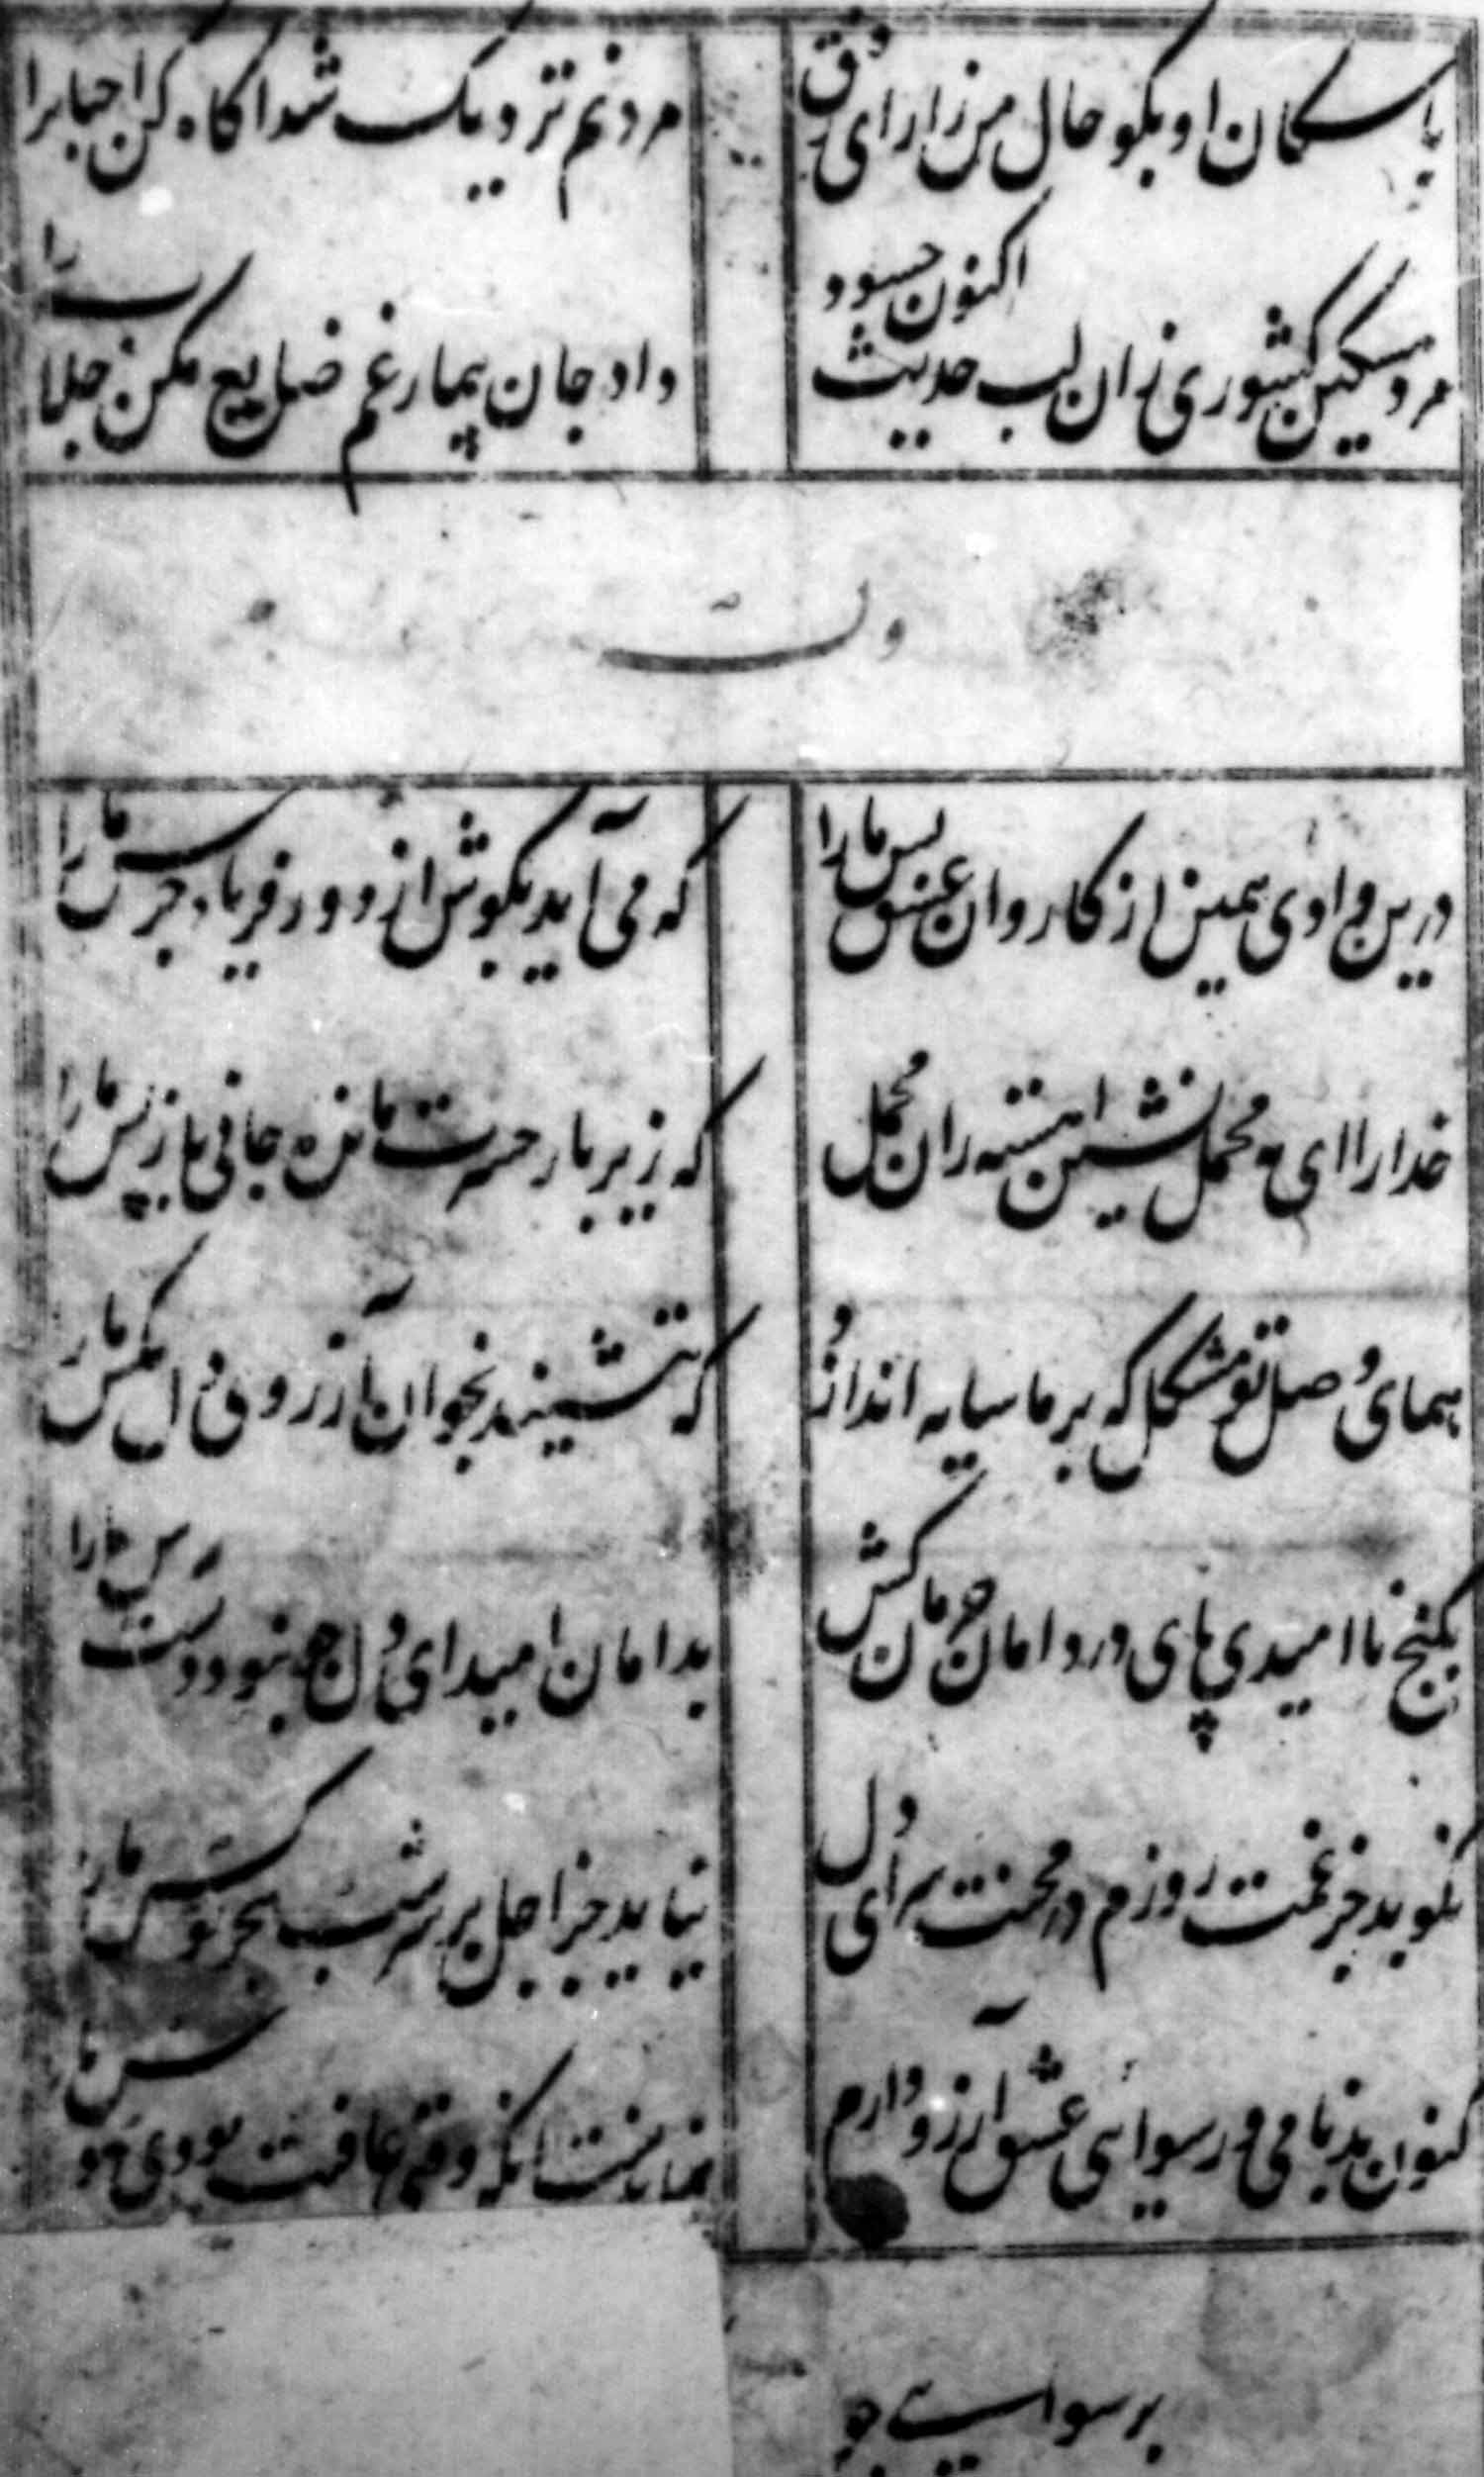 با سگان او بگو حال من زار ای رفیق
مردنم نزدیک شد آگاه کن احبابرا
مرد مسکین کشوری زان لب حدیث اکنون چسود
داد جان بیمار غم ضایع مکن جلاب را
وله
درین وادی همین از کاروان عشق بس ما را
که می آید بگوش از دور فریاد جرس ما را
خدارا ای محمل نشین آهسته ران محمل
که زیر بار حسرت مانده جانی باز پس ما را
همای وصل تو مشکل که بر ما سایه اندازد
که ننشیند بخوان آرزوی دل مگس ما را
بکنج ناامیدی پای در دامان حرمان کش
بدامان امید ای دل چو نبود دست رس ما را
نگوید جز غمت روزم در محنت سرای دل
نیاید جز اجل بر سر شب هجر تو کس ما را
کنون بدنامی و رسوایی عشق آرزو دارم
آنکه وقتی عافیت بودی هوس ما
برسوایی چو